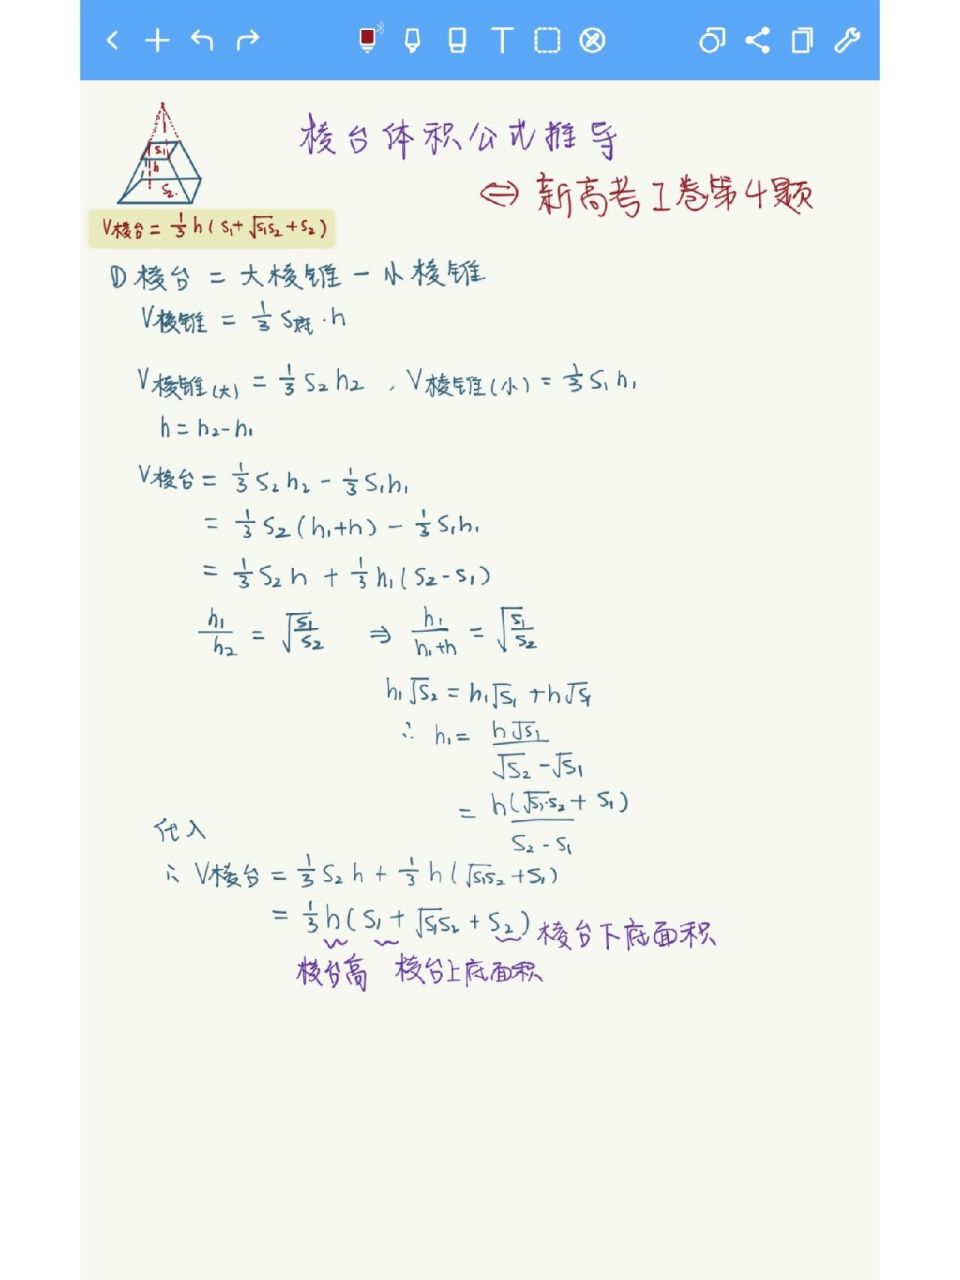 棱台体积公式推导
⇔ 新高考I卷第4题
S₁
h
S₂
V棱台 = 1/3 h(S₁+√S₁S₂+S₂)
① 棱台 = 大棱锥 - 小棱锥
V棱锥 = 1/3 S底·h
V棱锥(大) = 1/3 S₂h₂ , V棱锥(小) = 1/3 S₁h₁
h = h₂-h₁
V棱台 = 1/3 S₂h₂ - 1/3 S₁h₁
= 1/3 S₂(h₁+h) - 1/3 S₁h₁
= 1/3 S₂h + 1/3 h₁(S₂-S₁)
h₁/h₂ = √(S₁/S₂) ⇒ h₁/(h₁+h) = √(S₁/S₂)
h₁√S₂ = h₁√S₁ + h√S₁
∴ h₁ = h√S₁/(√S₂-√S₁)
= h(√S₁·S₂ + S₁)/(S₂-S₁)
代入
∴ V棱台 = 1/3 S₂h + 1/3 h(√S₁S₂+S₁)
= 1/3 h(S₁+√S₁S₂+S₂) 棱台下底面积
棱台高 棱台上底面积